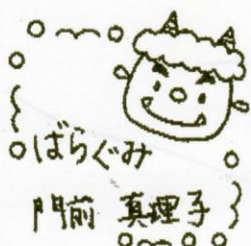 ばらぐみ
門前 真理子